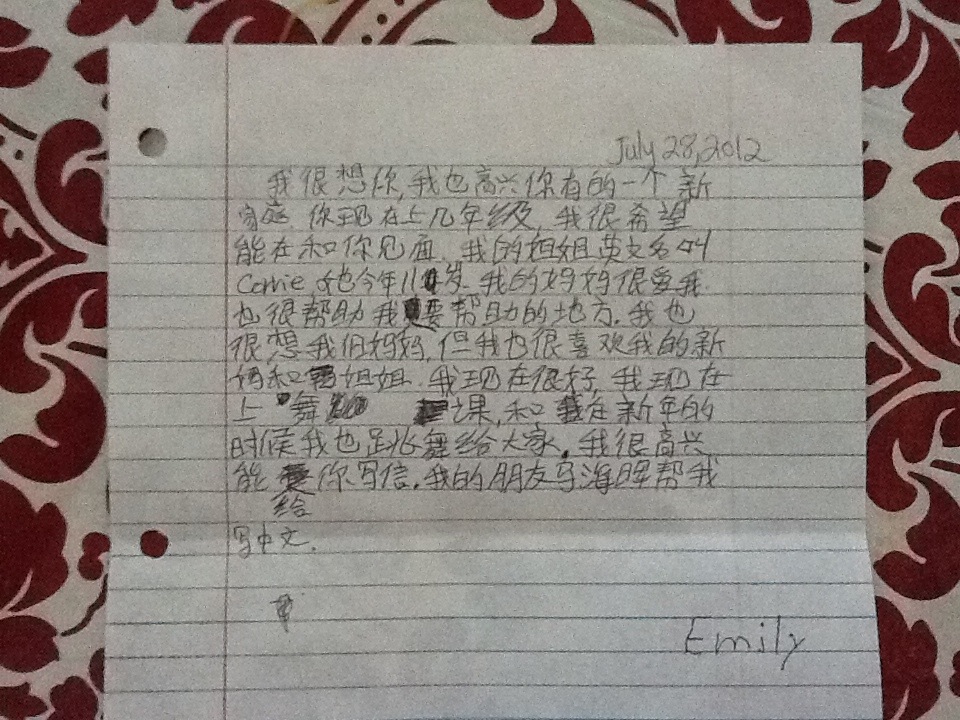 July 28, 2012
我很想你,我也高兴你有的一个新
家庭.你现在上几年级.我很希望
能在和你见面.我的姐姐英文名叫
Corrie.她今年11岁.我的妈妈很爱我.
也很帮助我要帮助的地方.我也
很想我们妈妈,但我也很喜欢我的新
妈和姐姐.我现在很好.我现在
上舞课,和在新年的
时候我也跳舞给大家.我很高兴
能给你写信.我的朋友马海晖帮我
写中文.
Emily